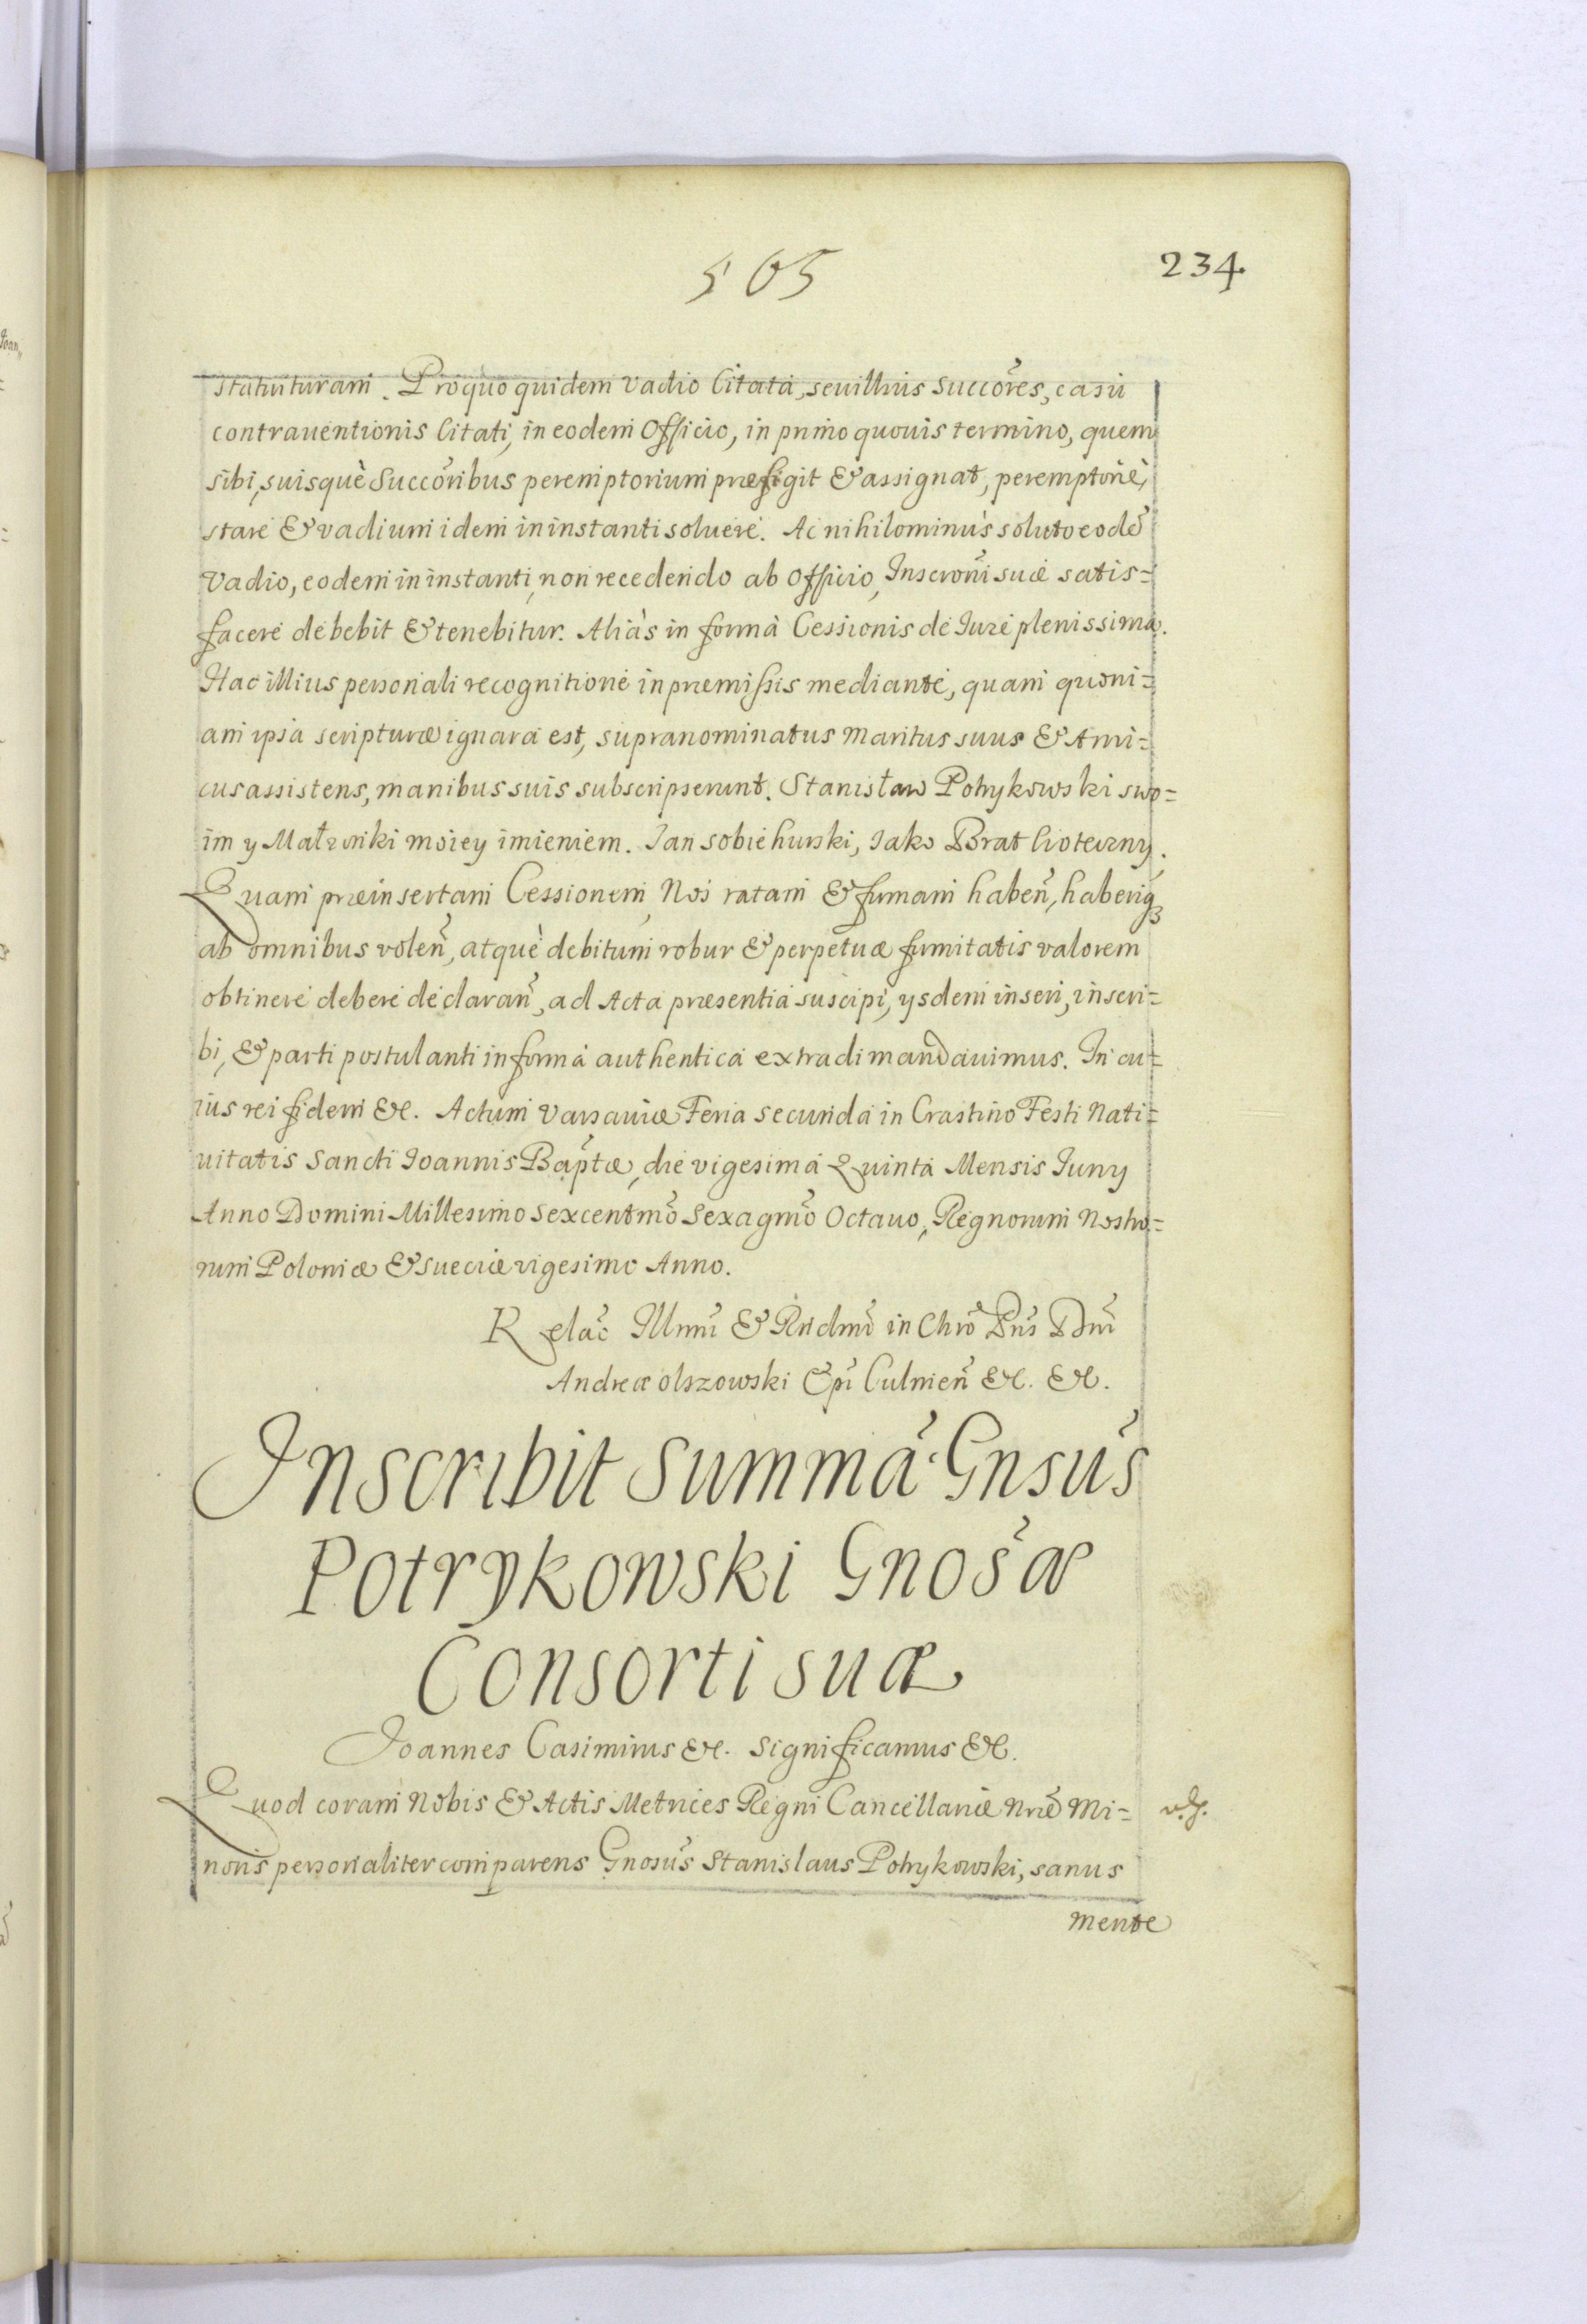 505
234.
statuituram. Pro quo quidem vadio Citata, seu illius Succõres, casu
contrauentionis Citati, in eodem Officio, in primo quouis termino, quem
sibi, suisquè Succõribus peremptorium præfigit & assignat, peremptoriè,
stare & vadium idem in instanti soluere. Ac nihilominùs soluto eodē
Vadio, eodem in instanti, non recedendo ab Officio, Inscrõni suæ satis=
facere debebit & tenebitur. Aliàs in formâ Cessionis de Iure plenissimâ.
Hac illius personali recognitione in præmissis mediante, quam quoni=
am ipsa scripturæ ignara est, supranominatus Maritus suus & Ami=
cus assistens, manibus suis subscripserunt. Stanisław Potrykowski swo=
im y Małzonki moiey imieniem. Jan Sobiehurski, Jako Brat Cioteczny.
Quam præinsertam Cessionem Nos ratam & firmam habeñ, haberiq3
ab omnibus voleñ, atquè debitum robur & perpetuæ firmitatis valorem
obtinere debere declarañ, ad Acta præsentia suscipi, ysdem inseri, inscri=
bi, & parti postulanti in formâ authenticâ extradi mandauimus. In cu=
ius rei fidem &c. Actum Varsauiæ Feria secunda in Crastino Festi Nati=
uitatis Sancti Joannis Bapt̃æ, die vigesimâ Quintâ Mensis Juny
Anno Domini Millesimo Sexcentmõ Sexagmõ Octauo, Regnorum Nostro=
rum Poloniæ & Sueciæ vigesimo Anno.
Relac̃ Illmi̇̃ & Rndmĩ in Chrõ Pñs Dñi
Andreæ Olszowski Epĩ Culmeñ &c. &c.
Inscribit Summã Gnsũs
Potrykowski Gnos̃æ
Consorti suæ
Joannes Casimirus &c. Significamus &c.
Quod coram Nobis & Actis Metrices Regni Cancellariæ Nrẽ Mi=
v.g.
noris personaliter comparens Gnosũs Stanislaus Potrykowski, sanus
mente